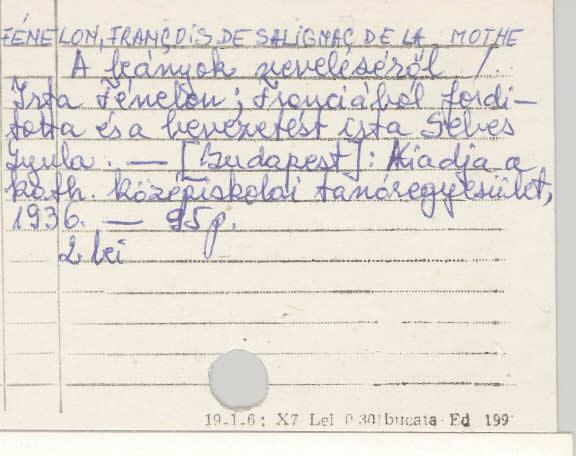 FÉNELON, FRANÇOIS DE SALIGNAC DE LA MOTHE
A leányok neveléséről /
Irta Fénelon; Franciából fordi-
totta és a bevezetést irta Sebes
Gyula. — [Budapest]: Kiadja a
kath. középiskolai tanáregyesület,
1936. — 95 p.
2 lei
19-1-6; X7 Lei 0.30 bucata Ed 199